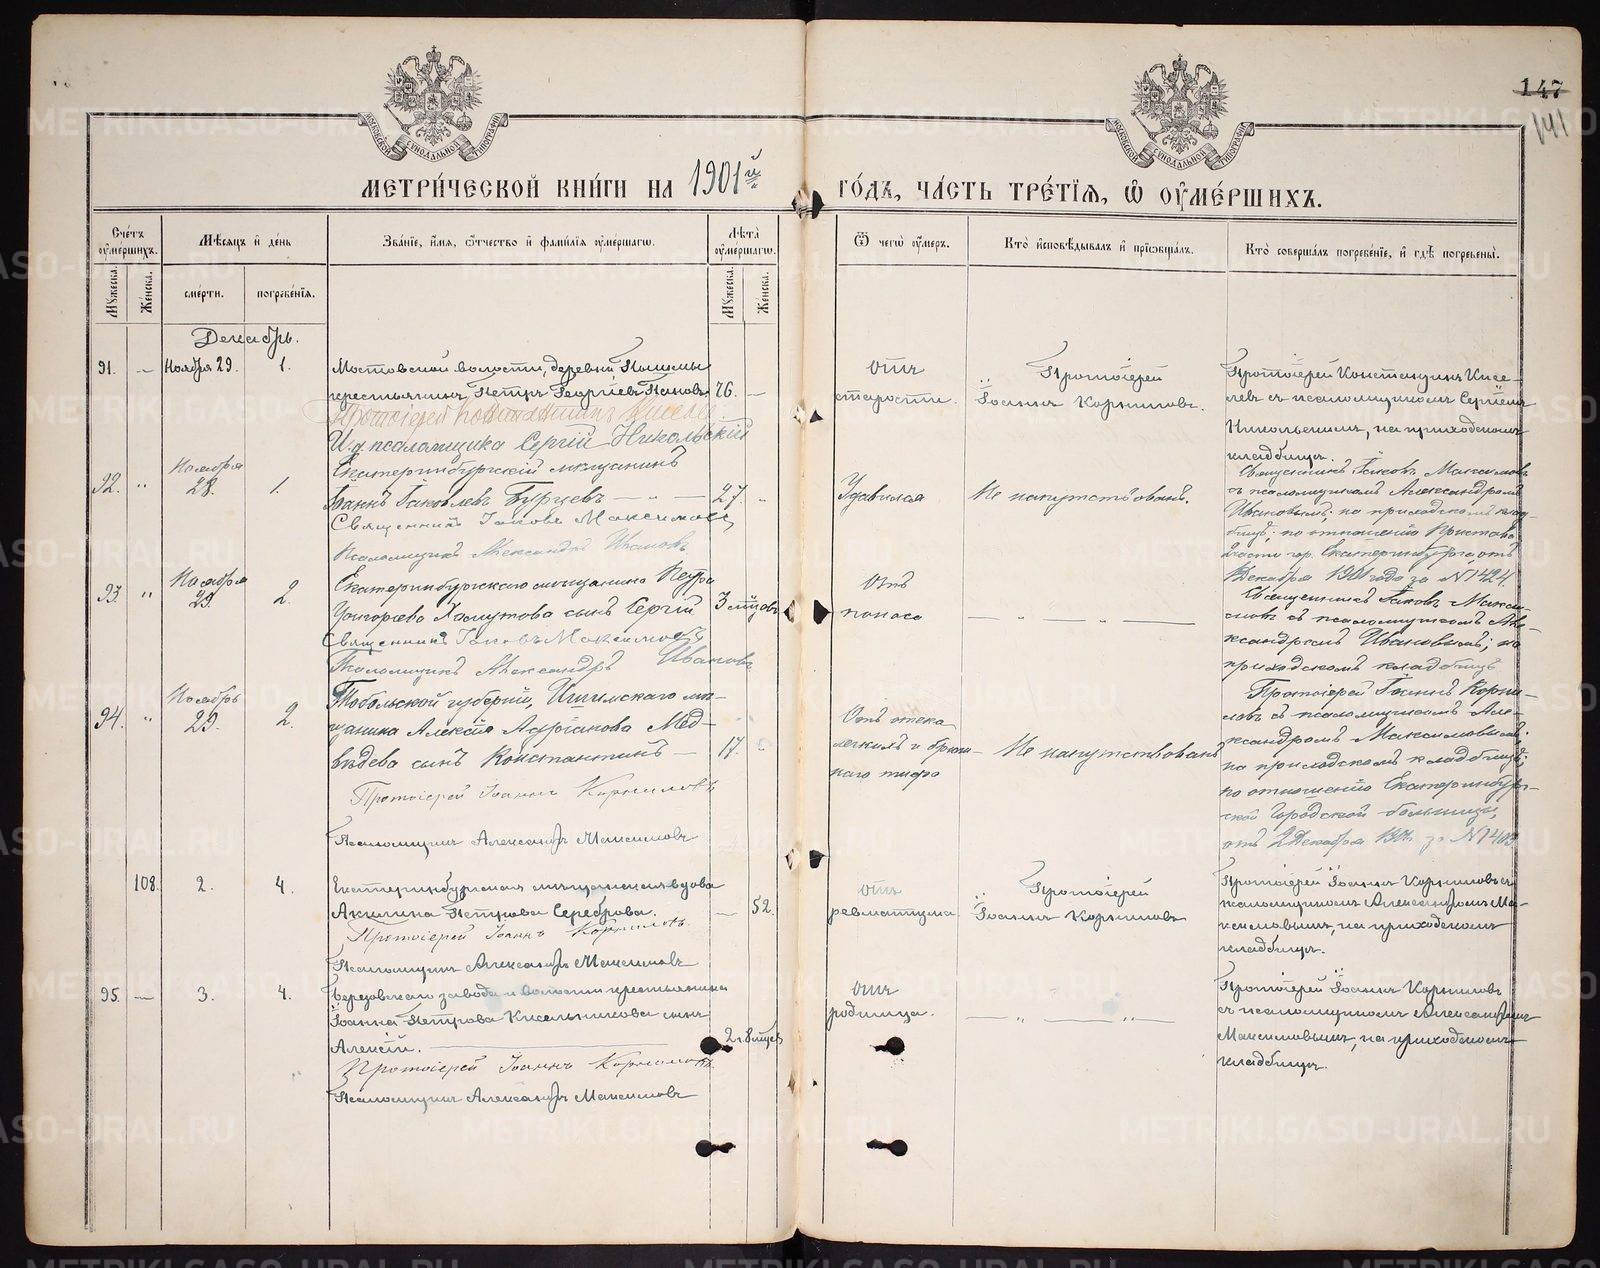 147
141
МЕТРИ́ЧЕСКОЙ КНИ́ГИ НА 1901й ГО́ДЪ, ЧА́СТЬ ТРЕ́ТІѦ, Ѽ ОУ҆МЕ́РШИХЪ.
Сче́тъ оу҆ме́ршихъ.
Мѣ́сѧцъ и҆ де́нь
Зва́нїе, и҆́мѧ, ѻ҆́тчество и҆ фами́лїѧ оу҆ме́ршагѡ.
Лѣ́та оу҆ме́ршагѡ.
Ѿ чегѡ̀ оу҆́меръ.
Кто̀ и҆сповѣ́дывалъ и҆ прїѡбща́лъ.
Кто̀ соверша́лъ погребе́нїе, и҆ гдѣ̀ погребены̀.
Мꙋ́жеска.
Же́нска.
сме́рти.
погребе́нїѧ.
Мꙋ́жеска.
Же́нска.
Декабрь.
91. — Ноября 29. 1.
Мостовской волости, деревни
крестьянинъ Петръ Георгіевъ Пановъ 76. —
Протоіерей Константинъ
И. д. псаломщика Сергій Никольскій
отъ
старости.
Протоіерей
Іоаннъ Корниловъ.
Протоіерей Константинъ Кисе-
левъ съ псаломщикомъ Сергіемъ
Никольскимъ, на приходскомъ
кладбищѣ.
92. " Ноября 28. 1.
Екатеринбургскій мѣщанинъ
Іоаннъ Іаковлевъ Бурцевъ — " — 27. "
Священникъ Іаковъ Максимовъ
Псаломщикъ Александръ Ивановъ
Удавился
Не напутствованъ.
Священникъ Іаковъ Максимовъ
съ псаломщикомъ Александромъ
Ивановымъ; на приходскомъ клад-
бищѣ; по отношенію Пристава
части гор. Екатеринбурга отъ
Декабря 1901 года за № 1424
93. " Ноября 29. 2.
Екатеринбургскаго мѣщанина Петра
Григорьева Хомутова сынъ Сергій 3 мѣсяцовъ
Священникъ Іаковъ Максимовъ
Псаломщикъ Александръ Ивановъ
Отъ
поноса
— " — " —
Священникъ Іаковъ Макси-
мовъ съ псаломщикомъ Але-
ксандромъ Ивановымъ; на
приходскомъ кладбищѣ
94. " Ноябрь 29. 2.
Тобольской губерніи, Ишимскаго мѣ-
щанина Алексѣя Мед-
вѣдева сынъ Константинъ — 17. "
Протоіерей Іоаннъ Корниловъ
Псаломщикъ Александръ Максимовъ
Отъ отека
легкихъ и брюш-
наго тифа
Не напутствованъ
Протоіерей Іоаннъ Корни-
ловъ съ псаломщикомъ Але-
ксандромъ Максимовымъ;
на приходскомъ кладбищѣ;
по отношенію Екатеринбург-
ской Городской больницы,
отъ 2 Декабря за №
108. 2. 4.
Екатеринбургская мѣщанская вдова
Акилина Петрова Сереброва. — 52.
Протоіерей Іоаннъ Корниловъ.
Псаломщикъ Александръ Максимовъ
отъ
ревматизма
Протоіерей
Іоаннъ Корниловъ
Протоіерей Іоаннъ Корниловъ съ
псаломщикомъ Александромъ Ма-
ксимовымъ, на приходскомъ
кладбищѣ.
95. — 3. 4.
Березовскаго завода и волости крестьянина
Іоанна Петрова Кисельникова сынъ
Алексій. — 2 г. 8 мѣс.
Протоіерей Іоаннъ Корниловъ.
Псаломщикъ Александръ Максимовъ
отъ
родимца.
— " — " —
Протоіерей Іоаннъ Корниловъ
съ псаломщикомъ Александромъ
Максимовымъ, на приходскомъ
кладбищѣ.
METRIKI.GASO-URAL.RU